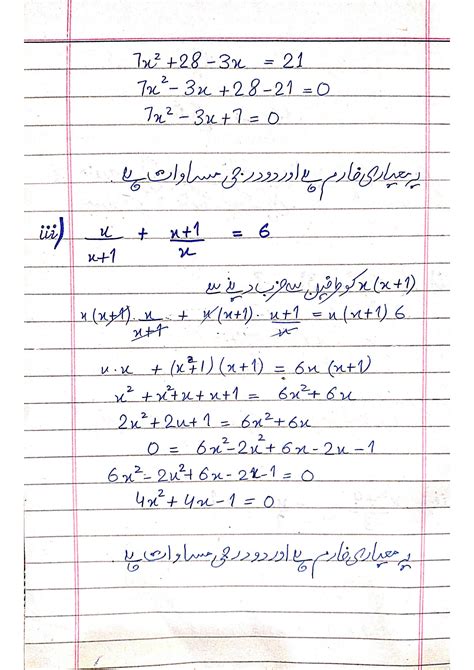 7x² + 28 - 3x = 21
7x² - 3x + 28 - 21 = 0
7x² - 3x + 7 = 0
یہ معیاری فارم ہے اور دو درجی مساوات ہے۔
iii) x/x+1 + x+1/x = 6
x(x+1) کو طرفین سے ضرب دینے سے
x(x+1) · x/x+1 + x(x+1) · x+1/x = x(x+1) 6
x·x + (x²+1)(x+1) = 6x(x+1)
x² + x² + x + x + 1 = 6x² + 6x
2x² + 2x + 1 = 6x² + 6x
0 = 6x² - 2x² + 6x - 2x - 1
6x² - 2x² + 6x - 2x - 1 = 0
4x² + 4x - 1 = 0
یہ معیاری فارم ہے اور دو درجی مساوات ہے۔